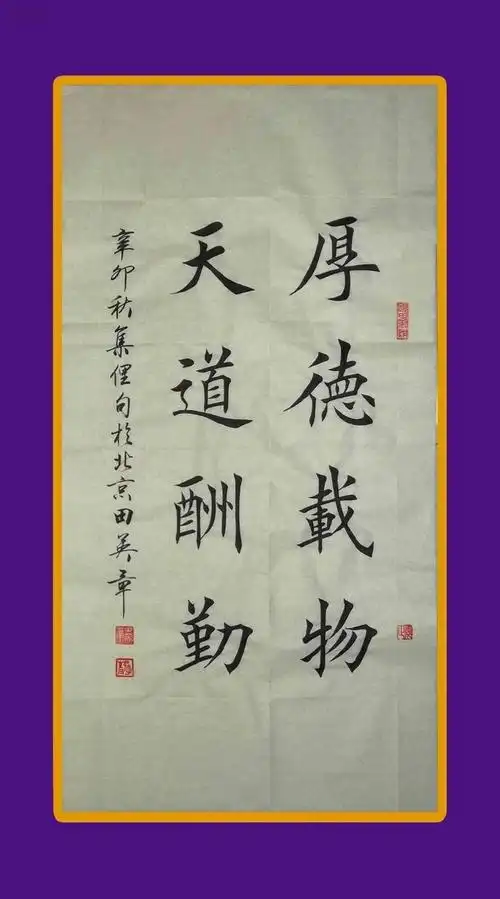 厚德載物
天道酬勤
辛卯秋集俚句於北京田英章